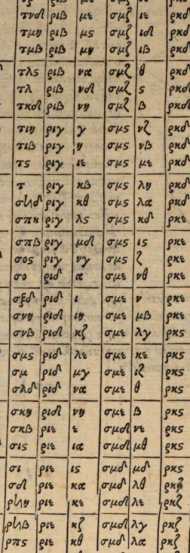 τνδ ριβ με σμζ ιε ρκδ
τμη ριβ μς σμζ ιδ ρκδ
τμβ ριβ μη σμζ ιβ ρκδ
τλς ριβ να σμζ θ ρκδ
τλ ριβ νδ σμζ ς ρκδ
τκδ ριβ νη σμζ β ρκδ
τιη ριγ γ σμς νζ ρκδ
τιβ ριγ η σμς νβ ρκδ
τς ριγ ιε σμς με ρκδ
τ ριγ κβ σμς λη ρκδ
σϟδ ριγ κθ σμς λα ρκδ
σπη ριγ λς σμς κδ ρκε
σπβ ριγ μδ σμς ις ρκε
σος ριγ νγ σμς ζ ρκε
σο ριδ α σμε νθ ρκε
σξδ ριδ ι σμε ν ρκε
σνη ριδ ιη σμε μβ ρκε
σνβ ριδ κζ σμε λγ ρκε
σμς ριδ λε σμε κε ρκς
σμ ριδ μγ σμε ιζ ρκς
σλδ ριδ να σμε θ ρκς
σκη ριδ νη σμε β ρκς
σκβ ριε ε σμδ νε ρκς
σις ριε ια σμδ μθ ρκς
σι ριε ις σμδ μδ ρκς
σδ ριε κα σμδ λθ
ρϟη ριε κε σμδ λε ρκζ
ρϟβ ριε κζ σμδ λγ ρκζ
ρπς ριε κθ σμδ λα ρκζ